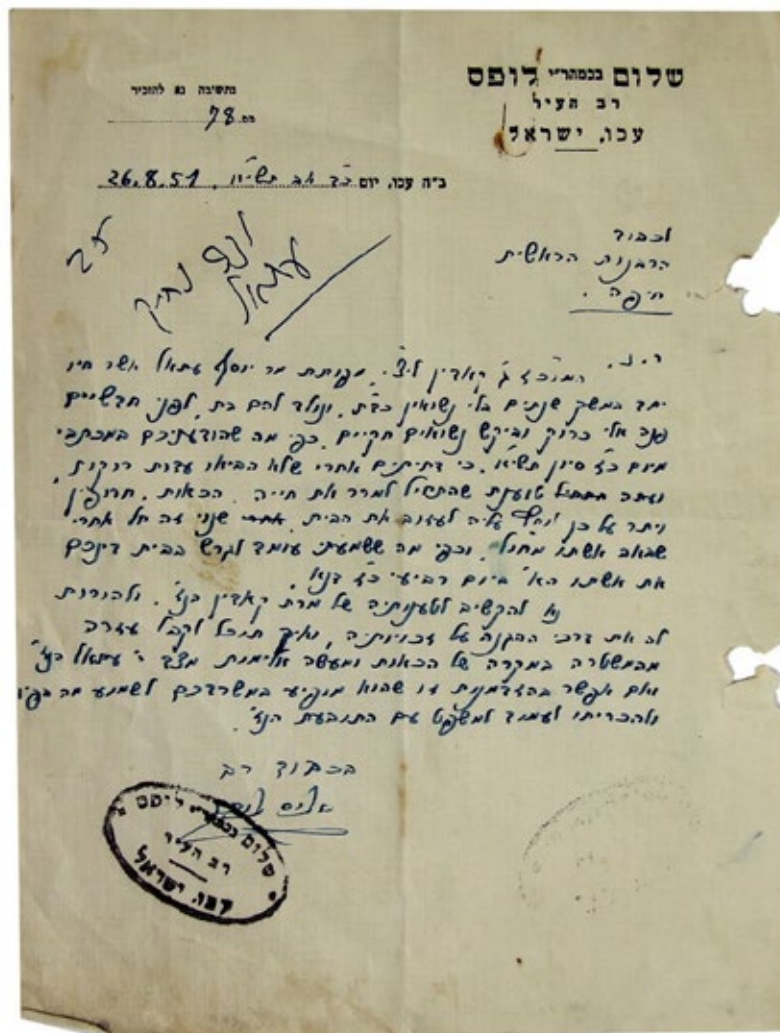 שלום בכמהר״י לופס
רב העיר
עכו, ישראל
בתשובה נא להזכיר
מס. 78
ב״ה עכו, יום כ״ד אב תשי״א, 26.8.51
לכבוד
הרבנות הראשית
חיפה.
א.נ.
המוכ״ז ג׳ קאדין ליצ״י, מפותת מר יוסף עתאל אשר חיו
יחד במשק שנתים בלי נשואין כדת, ונולד להם בת, לפני חדשיים
פנה אלי כרוק וביקש נשואים חקיים, כפי מה שהודעתיכם במכתבי
מיום כ״ג סיון תשי״א, כי דחיתים אחרי שלא הביאו עדות רווקות,
ועתה טוענת שהתחיל למרר את חייה, הכאות, חרופין
ויתר על כן לוחץ עליה לעזוב את הבית, שנוי זה חל אחרי
שבאה אשתו מחו״ל, וכפי מה ששמעתי עומד לגרש בבית דינכם
את אשתו הא׳ ביום רביעי כ״ז דנא.
נא להקשיב לטענותיה של מרת קאדין הנ״ז, ולהורות
לה את דרכי ההגנה על זכויותיה, ואיך תוכל לקבל עזרה
מהמשטרה במקרה של הכאות ומעשה אלימות מצד י׳ עתאל הנ״ז
ואם אפשר בהזדמנות זו שהוא מופיע במשרדכם לשמוע מה בפיו
ולהכריחו לעמוד למשפט עם התובעת הנ״ז.
בכבוד רב
שלום לופס
שלום בכמהר״י לופס
רב העיר
עכו, ישראל